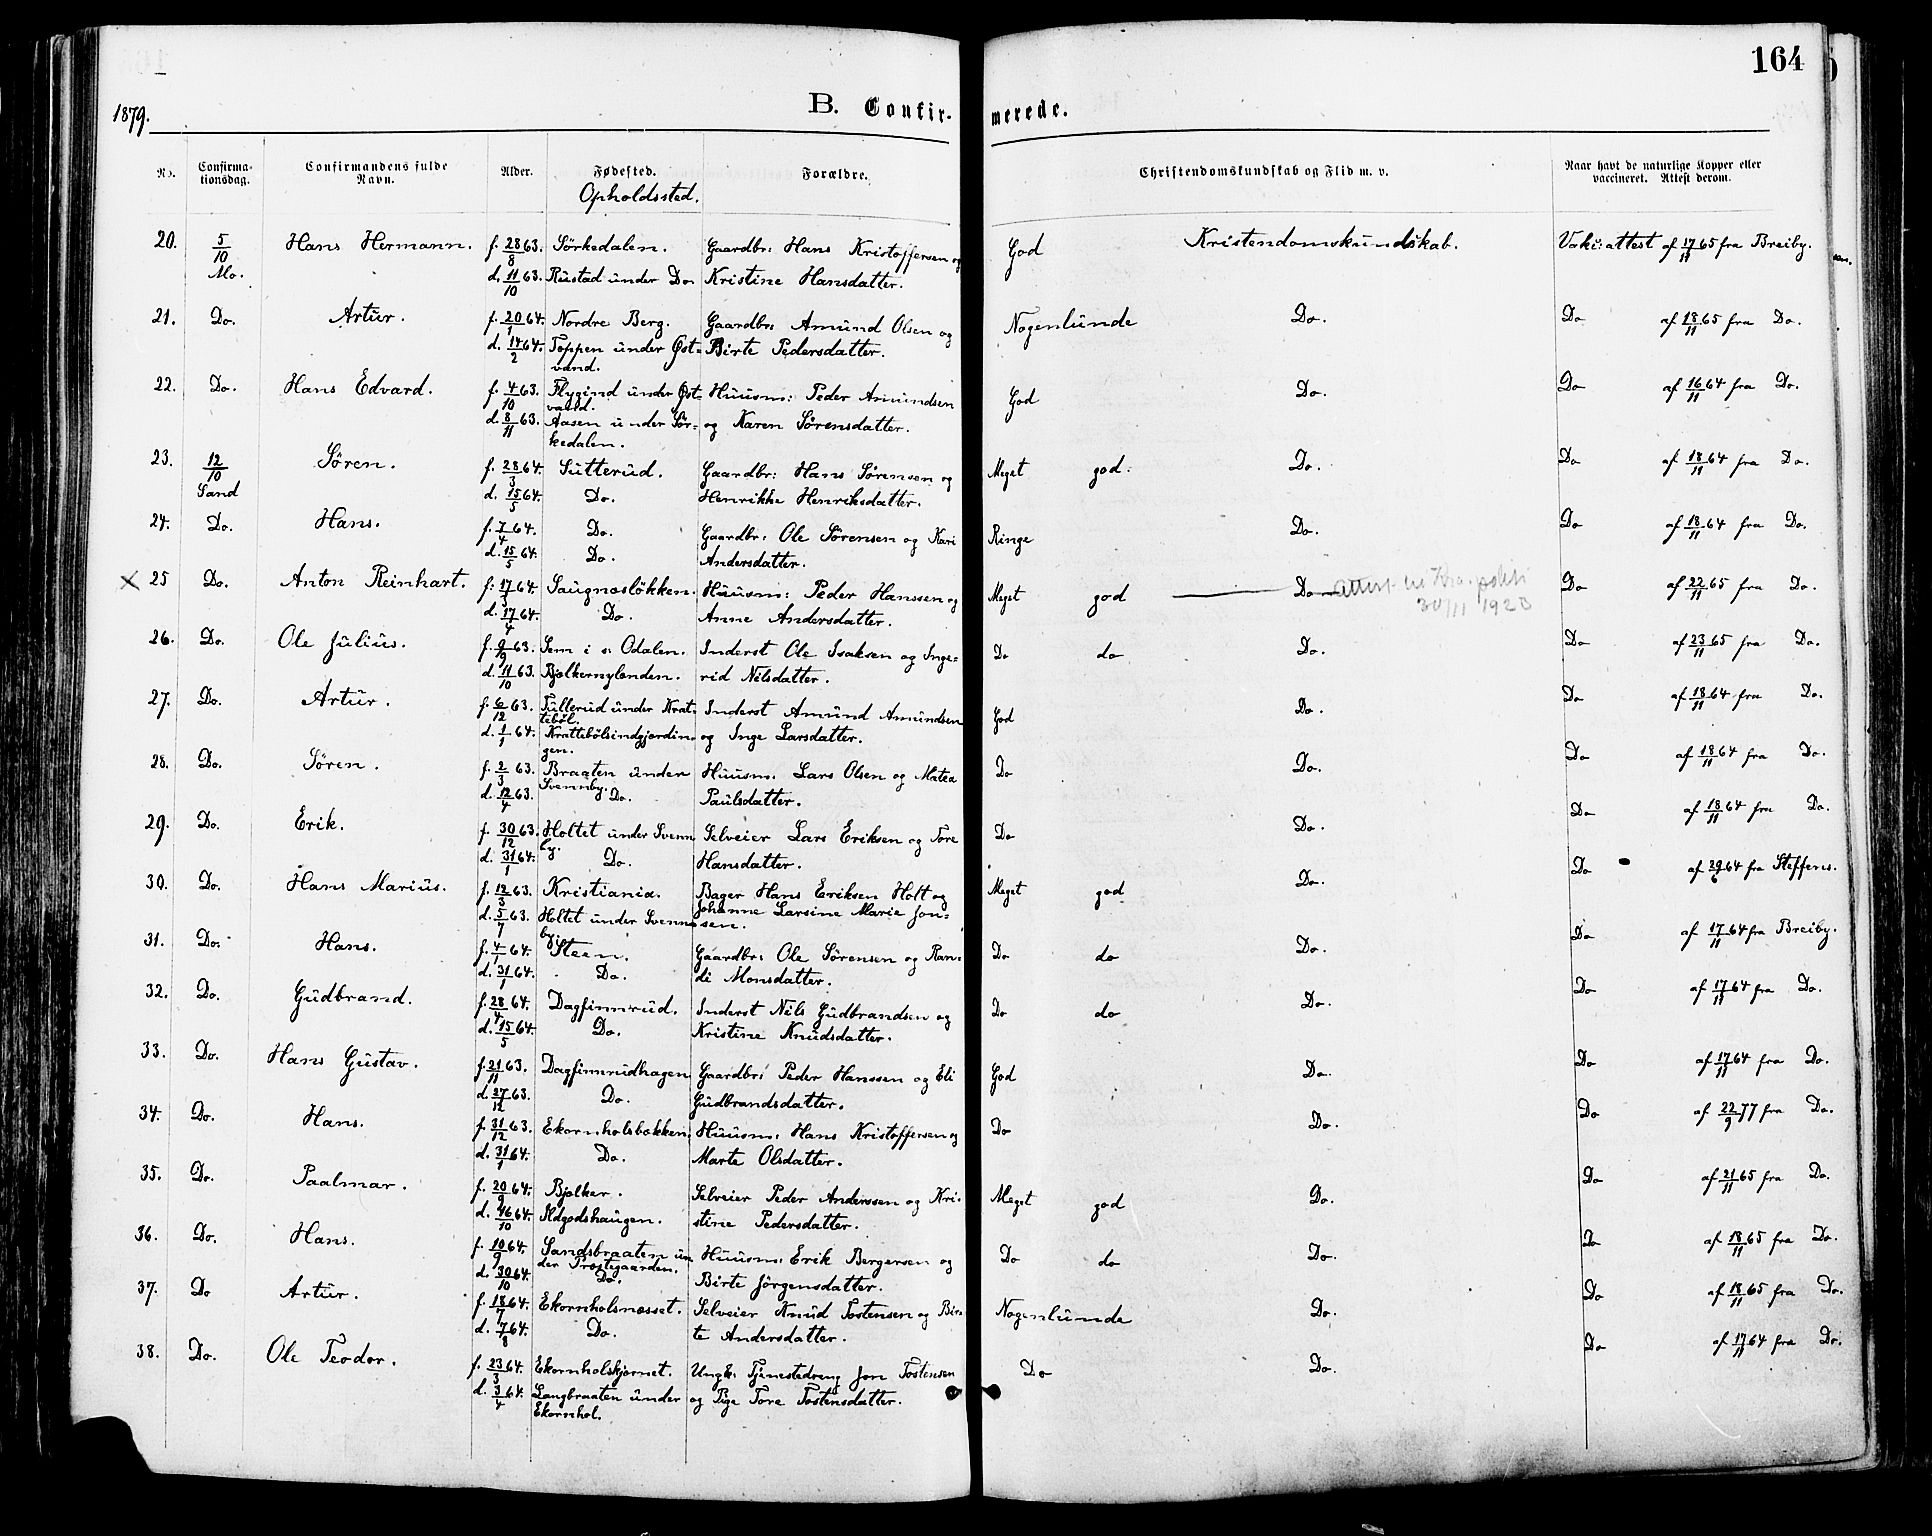 164
1879.
B. Confirmerede.
No. Confirmationsdag. Confirmandens fulde Navn. Alder. Fødested. Forældre. Christendomskundskab og Flid m. v. Naar havt de naturlige Kopper eller vaccineret. Attest derom.
Opholdssted.
20. 5/10 Hans Hermann. f. 28/8 63. Sörkedalen. Gaardbr: Hans Kristoffersen og God Kristendomskundskab. Vaki: attest af 17/11 65 fra Breiby.
Mo. d. 11/10 63. Rustad under Do Kristine Hansdatter.
21. Do. Artur. f. 20/1 64. Nordre Berg. Gaardbr: Amund Olsen og Nogenlunde Do. Do af 18/11 65 fra Do.
d. 14/2 64. Toppen under Øst- Birte Pedersdatter.
vand.
22. Do. Hans Edvard. f. 4/10 63. Flygind under Øst Huusm: Peder Amundsen God Do. Do af 16/11 64 fra Do.
vand.
d. 8/11 63. Aasen under Sör- og Karen Sörensdatter.
kedalen.
23. 12/10 Sören. f. 28/3 64. Sutterud. Gaardbr: Hans Sörensen og Meget god. Do. Do af 18/11 64 fra Do.
Sand d. 15/5 64. Do. Henrikke Henriksdatter.
24. Do. Hans. f. 7/4 64. Do. Gaardbr: Ole Sörensen og Kari Ringe Do. Do af 18/11 64 fra Do.
d. 15/5 64. Do. Andersdatter.
25 Do. Anton Reinhart. f. 17/3 64. Saugnæslökken. Huusm: Peder Hanssen og Meget god Do Attest Kra. politi Do af 22/11 65 fra Do.
30/11 1923
d. 17/4 64. Do. Anne Andersdatter.
26. Do. Ole Julius. f. 9/9 63. Sem i s: Odalen. Inderst Ole Isaksen og Inge- Do do Do. Do af 23/11 65 fra Do.
d. 11/10 63. Bjælkernylænden. rid Nilsdatter.
27. Do. Artur. f. 6/12 63. Tullerud under Krat- Inderst Amund Amundsen God Do. Do af 18/11 64 fra Do.
tebøl.
d. 1/1 64. Krattebölsindgjærdin- og Inge Larsdatter.
gen.
28. Do. Sören. f. 2/3 63. Braaten under Huusm: Lars Olsen og Matea Do Do. Do af 18/11 64 fra Do.
Svennby.
d. 12/4 63. Do. Paulsdatter.
29. Do. Erik. f. 30/12 63. Holtet under Svenn Selveier Lars Eriksen og Tore Do Do. Do af 18/11 64 fra Do.
by.
d. 31/1 64. Do. Hansdatter.
30. Do. Hans Marius. f. 12/3 63. Kristiania. Bager Hans Eriksen Holt og Meget god Do. Do af 29/6 64 fra Steffens.
d. 5/7 63. Holtet under Svenn Johanne Larsine Marie Jon-
by. sen.
31. Do. Hans. f. 4/1 64. Steen. Gaardbr: Ole Sörensen og Ran- Do do Do. Do af 17/11 64 fra Breiby.
d. 31/1 64. Do. di Monsdatter.
32. Do. Gudbrand. f. 28/4 64. Dagfinnrud. Inderst Nils Gudbrandsen og Do do Do. Do af 17/11 64 fra Do.
d. 15/5 64. Do. Kristine Knudsdatter.
33. Do. Hans Gustav. f. 21/11 63. Dagfinnrudhagen Gaardbr: Peder Hanssen og Eli God Do. Do af 17/11 64 fra Do.
d. 27/12 63. Do. Gudbrandsdatter.
34. Do. Hans. f. 31/12 63. Ekornholsbakken. Huusm: Hans Kristoffersen og Do Do. Do af 22/9 77 fra Do.
d. 31/1 64. Do. Marte Olsdatter.
35. Do. Paalmar. f. 20/9 64. Bjølker. Selveier Peder Anderssen og Kri- Meget god Do. Do af 21/11 65 fra Do.
d. 16/10 64. Ildgodshaugen. stine Pedersdatter.
36. Do. Hans. f. 10/9 64. Sandsbraaten un Huusm: Erik Bergersen og Do do Do. Do af 18/11 65 fra Do.
der Præstegaarden.
d. 30/10 64. Do. Birte Jörgensdatter.
37. Do Artur. f. 18/7 64. Ekornholsnæsset. Selveier Knud Tostensen og Bir- Nogenlunde Do. Do af 18/11 65 fra Do.
d. 7/8 64. Do. te Andersdatter.
38. Do. Ole Teodor. f. 23/3 64. Ekornholskjærnet. Ungk: Tjenestedreng Jon Tostensen Do Do. Do af 17/11 64 fra Do.
d. 3/4 64. Langbraaten under og Pige Tore Tostensdatter.
Ekornhol.